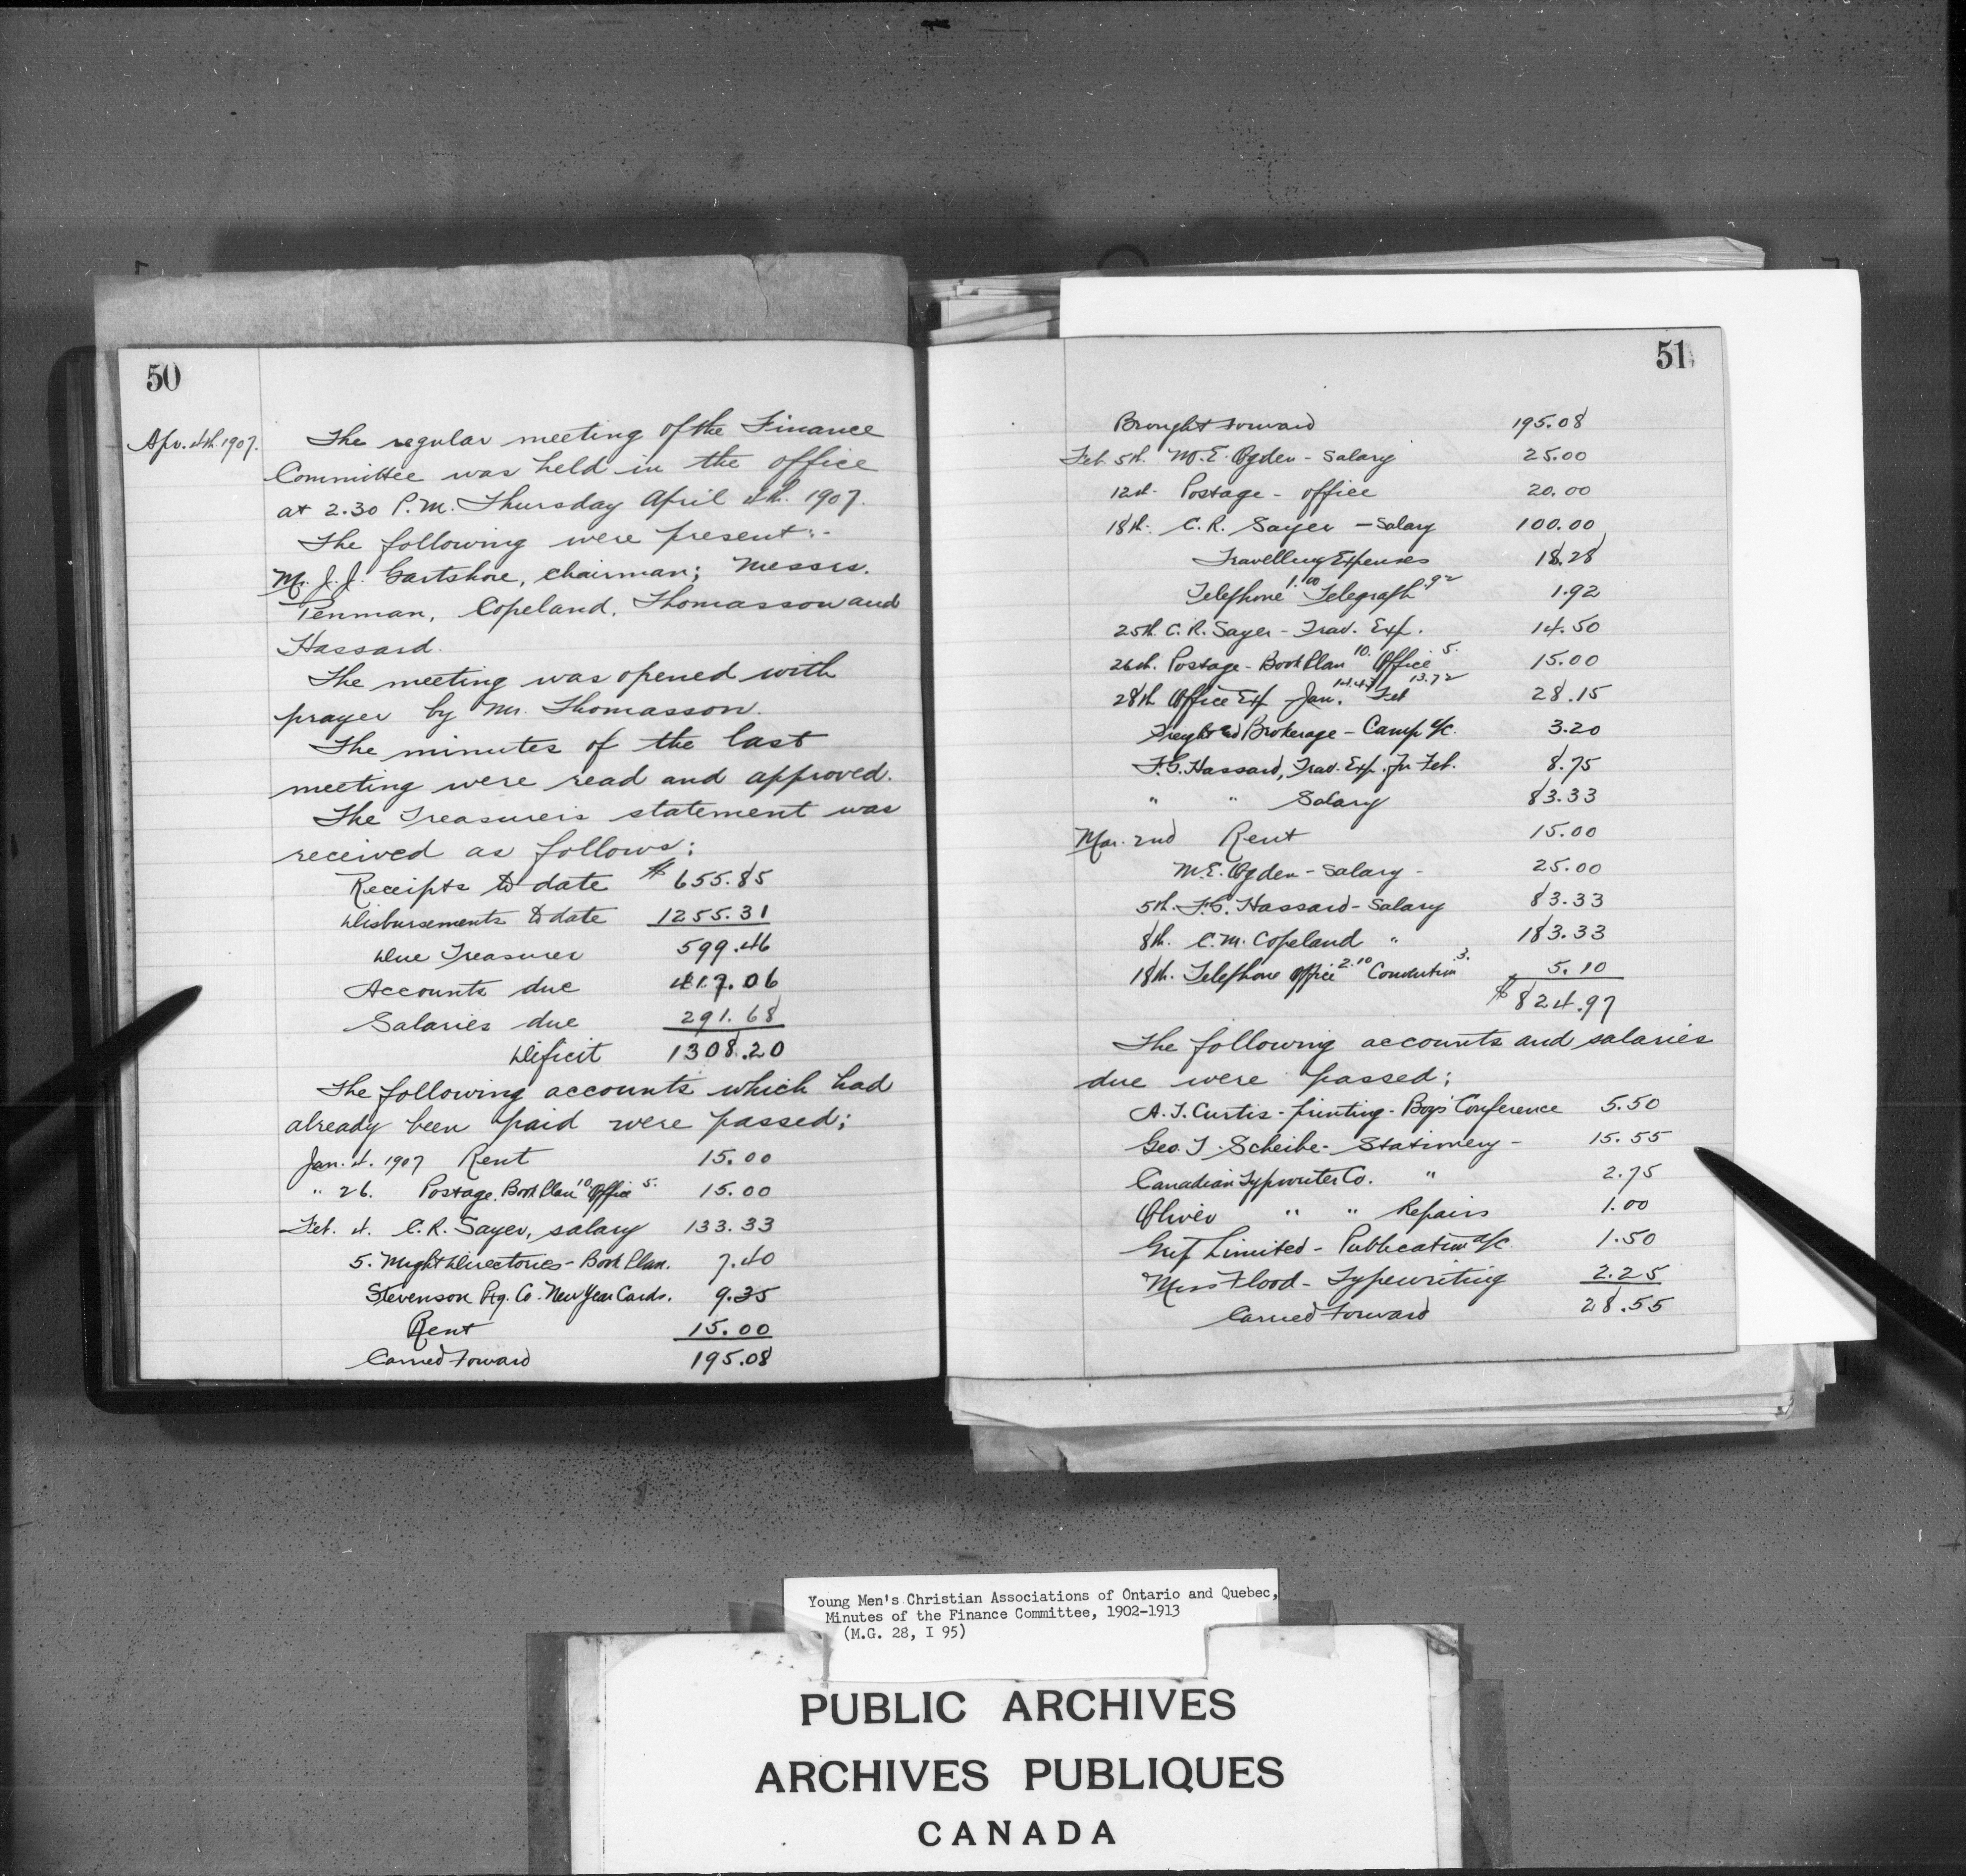 50
Apr. 4th 1907.
The regular meeting of the Finance
Committee was held in the office
at 2.30 P.M. Thursday April 4th. 1907.
The following were present:-
Mr. J. J. Gartshore, chairman; Messrs.
Penman, Copeland, Thomasson and
Hassard.
The meeting was opened with
prayer by Mr. Thomasson.
The minutes of the last
meeting were read and approved.
The Treasurers statement was
received as follows:
Receipts to date $655.85
Disbursements to date 1255.31
Due Treasurer 599.46
Accounts due 417.06
Salaries due 291.68
Deficit 1308.20
The following accounts which had
already been paid were passed;
Jan. 4. 1907 Rent 15.00
" 26. Postage. Book Plan 10. Office 5. 15.00
Feb. 4. C.R. Sayer, salary 133.33
5. Might Directories - Book Plan. 7.40
Stevenson Ptg. Co. New Year Cards. 9.35
Rent 15.00
Carried Forward 195.08
51
Brought Forward 195.08
Feb. 5th. M.E. Ogden - Salary 25.00
12th. Postage - office 20.00
18th. C.R. Sayer - Salary 100.00
Travelling Expenses 18.28
Telephone 1.00 Telegraph .92 1.92
25th. C.R. Sayer - Trav. Exp. 14.50
26th. Postage - Book Plan 10. Office 5. 15.00
28th Office Exp Jan. 14.43 Feb 13.72 28.15
Freight and Brokerage - Camp a/c. 3.20
F.G. Hassard, Trav. Exp. for Feb. 8.75
" " Salary 83.33
Mar. 2nd Rent 15.00
M.E. Ogden - Salary - 25.00
5th. F.G. Hassard - Salary 83.33
8th. C.M. Copeland " 183.33
18th. Telephone office 2.10 Convention 3. 5.10
$824.97
The following accounts and salaries
due were passed;
A.T. Curtis - printing - Boys' Conference 5.50
Geo. T. Scheibe - Stationery - 15.55
Canadian Typewriter Co. " 2.75
Oliver " " Repairs 1.00
Grip Limited - Publication a/c. 1.50
Miss Flood - Typewriting 2.25
Carried Forward 28.55
Young Men's Christian Associations of Ontario and Quebec,
Minutes of the Finance Committee, 1902-1913
(M.G. 28, I 95)
PUBLIC ARCHIVES
ARCHIVES PUBLIQUES
CANADA